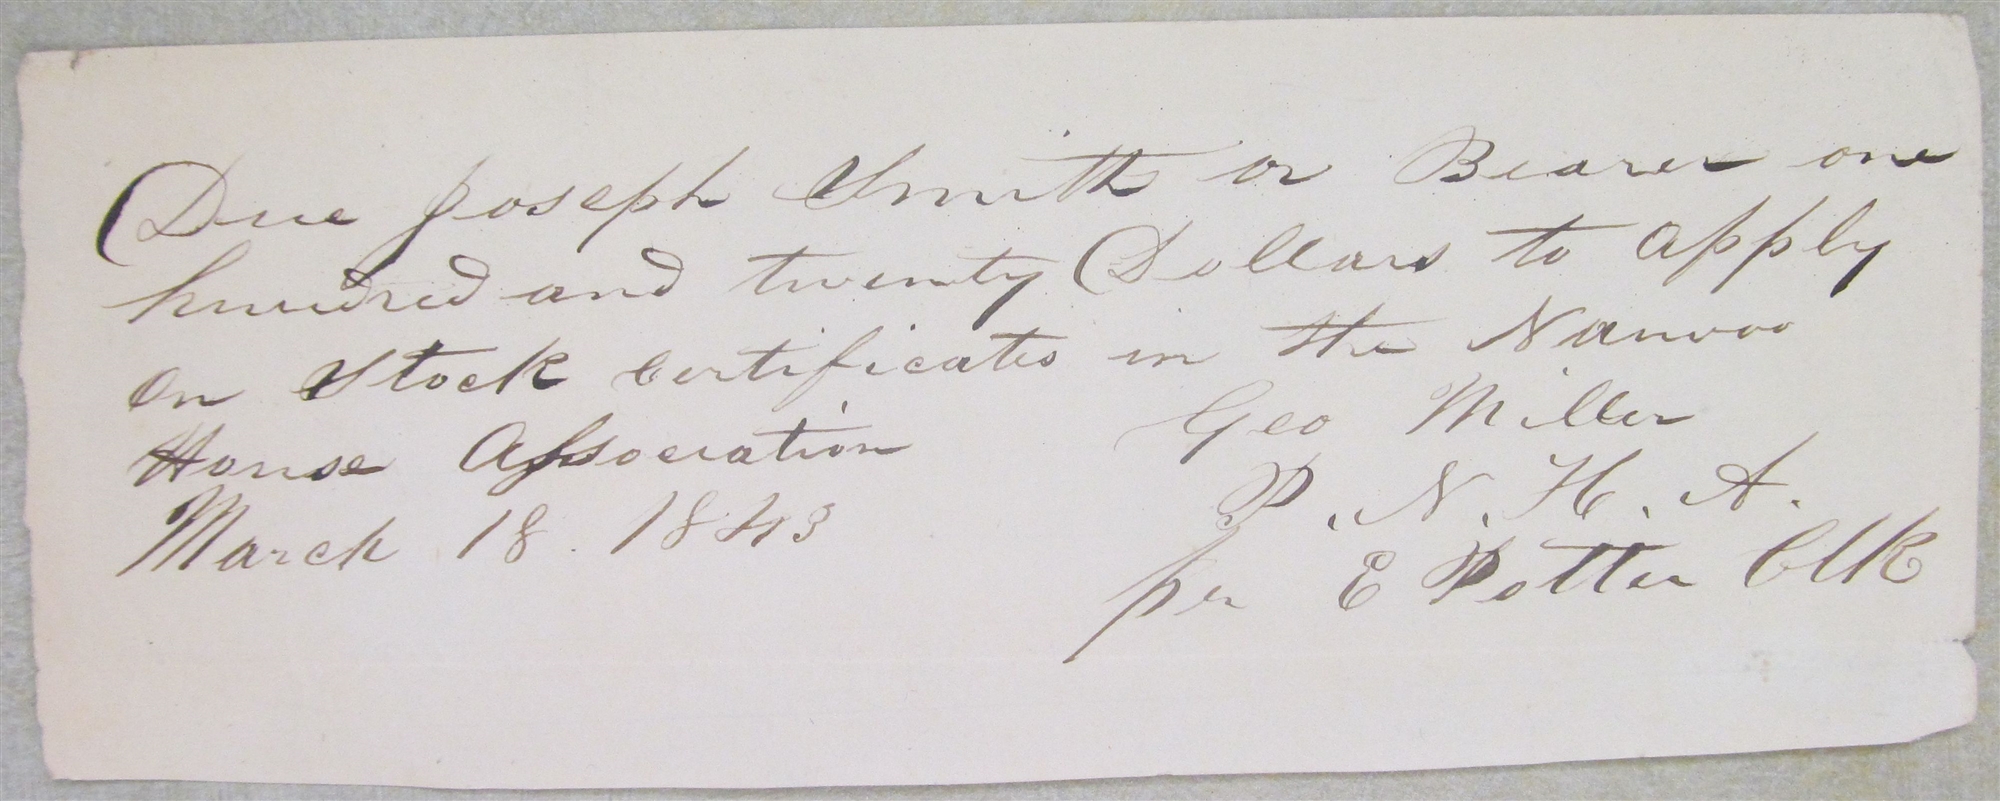 Due Joseph Smith or Bearer one
hundred and twenty Dollars to apply
on Stock certificates in the Nauvoo
House Association
Geo Miller
March 18. 1843
P. N. H. A.
per E Potter Clk